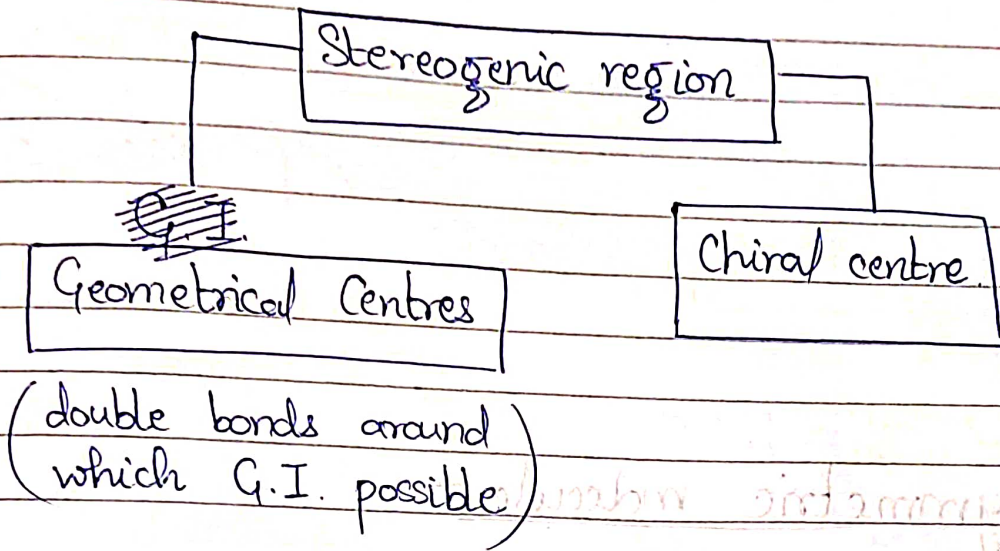 Stereogenic region
G.I.
Geometrical Centres
Chiral centre.
(double bonds around
which G.I. possible)